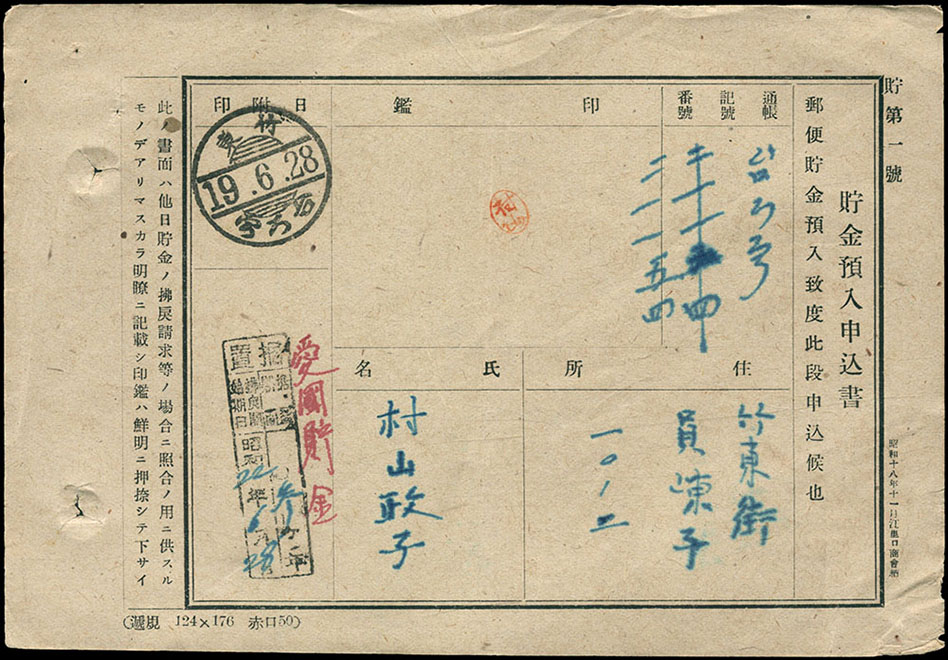 貯第一號
貯金預入申込書
郵便貯金預入致度此段申込候也
昭和十八年十一月江里口商會納
通帳
記號
番號
台ろ号
二一一五四
印鑑
日附印
竹東
19.6.28
台ろ号
住所
竹東街
員崠子
一〇ノ二
氏名
村山政子
愛國貯金
据置
据置期間
拂戻開始期日
昭和22年6月28
此ノ書面ハ他日貯金ノ拂戻請求等ノ場合ニ照合ノ用ニ供スル
モノデアリマスカラ明瞭ニ記載シ印鑑ハ鮮明ニ押捺シテ下サイ
124×176 赤口50)